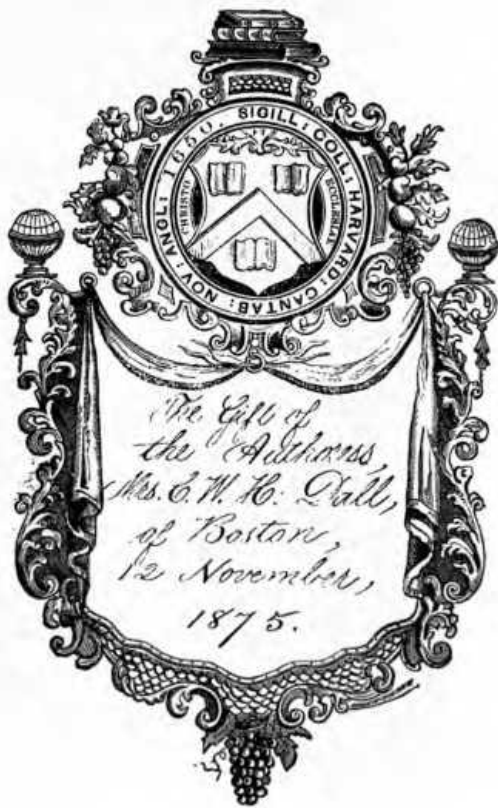 SIGILL: COLL: HARVARD: CANTAB: NOV: ANGL: 1650.
CHRISTO
ECCLESIAE
The Gift of
the Authoress,
Mrs. C. W. H. Dall,
of Boston,
12 November,
1875.